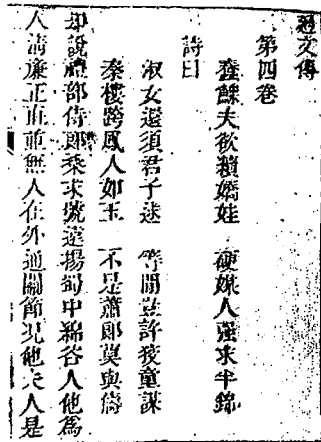 迴文傳
第四卷
蠢鰥夫欲續嬌娃　硬媒人强求半錦
詩曰
淑女還須君子逑　等閒豈許狡童謀
秦樓跨鳳人如玉　不是蕭郎莫與儔
却說禮部侍郎桒求號遠揚蜀中綿谷人他爲
人淸廉正直並無人在外通關節况他夫人是